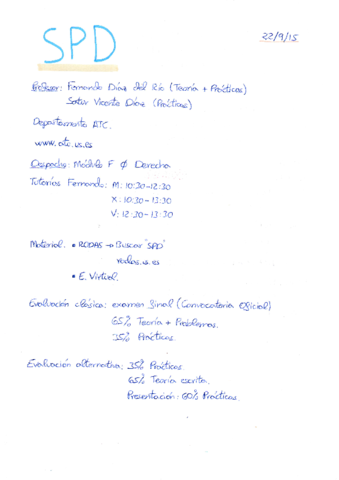 SPD
22/9/15
Profesor: Fernando Díaz del Río (Teoría + Prácticas)
Satur Vicente Díaz (Prácticas)
Departamento ATC.
www.atc.us.es
Despacho: Módulo F Ø Derecha
Tutorías Fernando: M: 10:30-12:30
X: 10:30-13:30
V: 12:30-13:30
Material: • RODAS → Buscar "SPD"
rodas.us.es
• E. Virtual.
Evaluación clásica: examen final (Convocatoria Oficial)
65% Teoría + Problemas.
35% Prácticas.
Evaluación alternativa: 35% Prácticas.
65% Teoría escrita.
Presentación: 60% Prácticas.